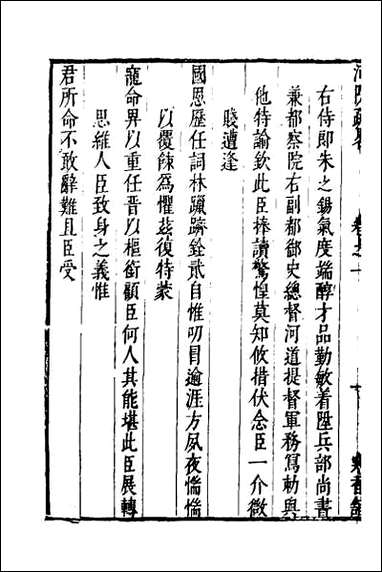 右侍郎朱之錫氣度端醇才品勤敏着陞兵部尚書
兼都察院右副都御史總督河道提督軍務寫勅與
他特諭欽此臣捧讀驚惶莫知攸措伏念臣一介微
賤遭逢
國恩歷任詞林躐躋銓貳自惟叨冒逾涯方夙夜惴惴
以覆餗爲懼茲復特蒙
寵命畀以重任晉以樞銜顧臣何人其能堪此臣展轉
思維人臣致身之義惟
君所命不敢辭難且臣受